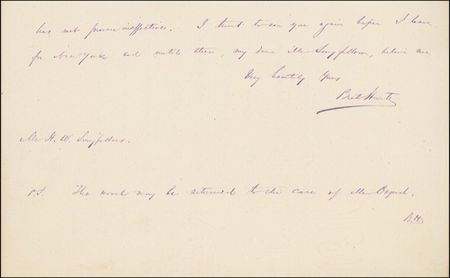 has not proven ineffective. I trust to see you again before I leave
for New York and until then, my dear Mr Longfellow, believe me
Very heartily Yours
Bret Harte
Mr H. W. Longfellow.
P.S. The novel may be returned to the care of Mr Osgood.
B.H.